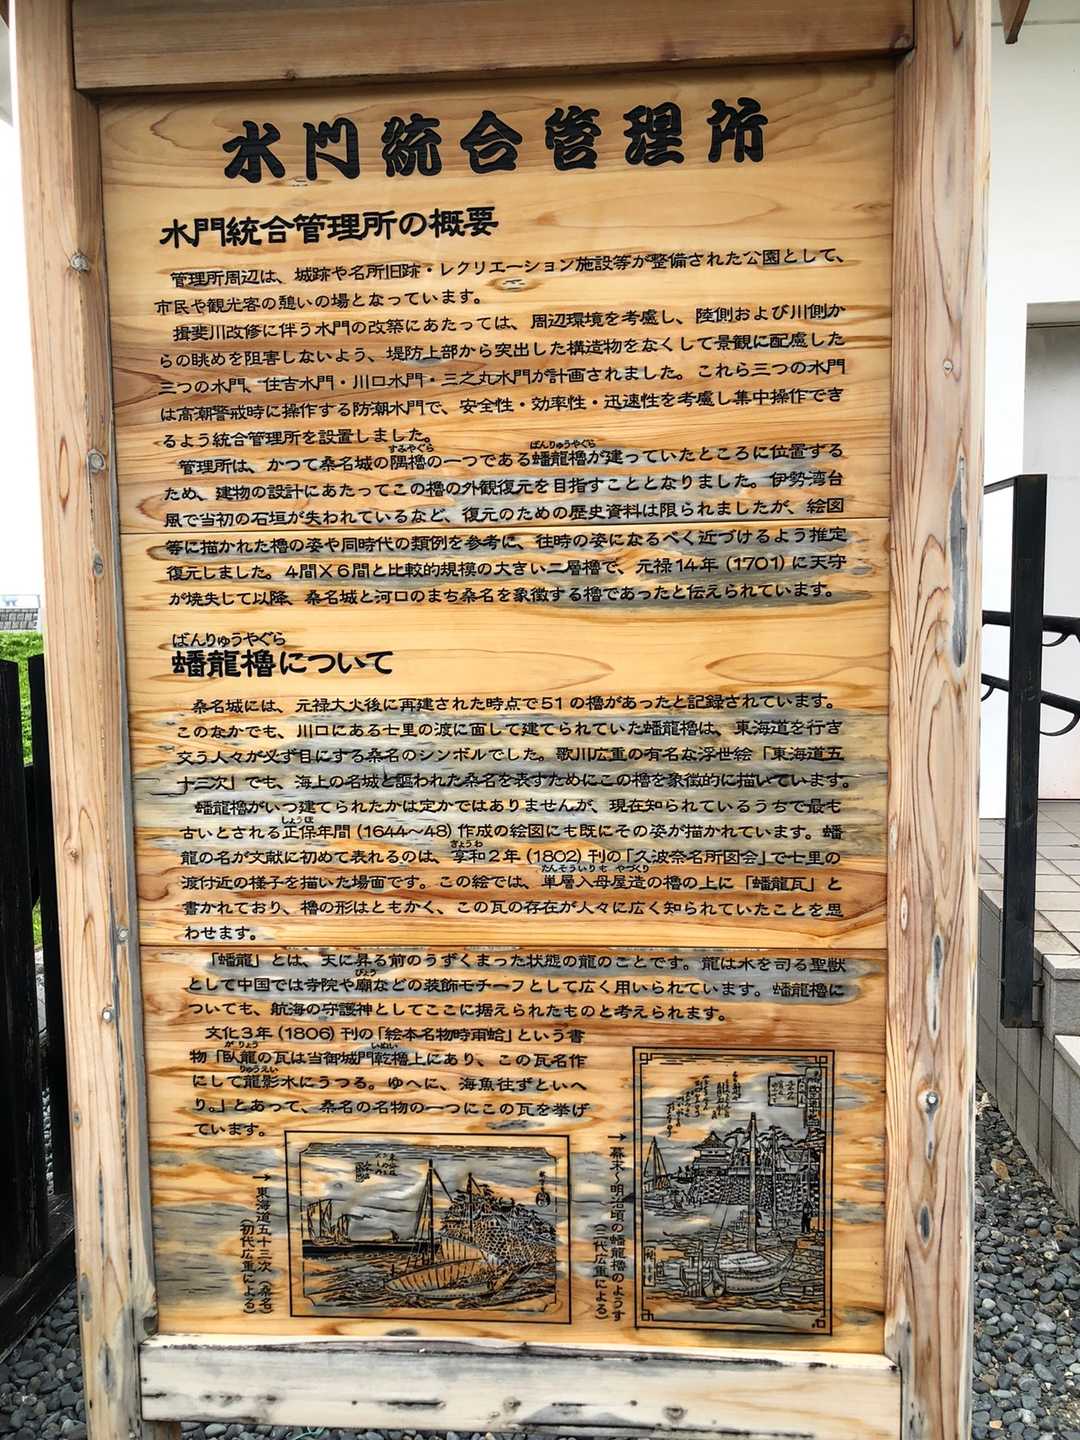 水門統合管理所
水門統合管理所の概要
管理所周辺は、城跡や名所旧跡・レクリエーション施設等が整備された公園として、
市民や観光客の憩いの場となっています。
揖斐川改修に伴う水門の改築にあたっては、周辺環境を考慮し、陸側および川側か
らの眺めを阻害しないよう、堤防上部から突出した構造物をなくして景観に配慮した
三つの水門、住吉水門・川口水門・三之丸水門が計画されました。これら三つの水門
は高潮警戒時に操作する防潮水門で、安全性・効率性・迅速性を考慮し集中操作でき
るよう統合管理所を設置しました。
すみやぐら ばんりゅうやぐら
管理所は、かつて桑名城の隅櫓の一つである蟠龍櫓が建っていたところに位置する
ため、建物の設計にあたってこの櫓の外観復元を目指すこととなりました。伊勢湾台
風で当初の石垣が失われているなど、復元のための歴史資料は限られましたが、絵図
等に描かれた櫓の姿や同時代の類例を参考に、往時の姿になるべく近づけるよう推定
復元しました。4間×6間と比較的規模の大きい二層櫓で、元禄14年(1701)に天守
が焼失して以降、桑名城と河口のまち桑名を象徴する櫓であったと伝えられています。
ばんりゅうやぐら
蟠龍櫓について
桑名城には、元禄大火後に再建された時点で51の櫓があったと記録されています。
このなかでも、川口にある七里の渡に面して建てられていた蟠龍櫓は、東海道を行き
交う人々が必ず目にする桑名のシンボルでした。歌川広重の有名な浮世絵「東海道五
十三次」でも、海上の名城と謳われた桑名を表すためにこの櫓を象徴的に描いています。
蟠龍櫓がいつ建てられたかは定かではありませんが、現在知られているうちで最も
しょうほ
古いとされる正保年間(1644～48)作成の絵図にも既にその姿が描かれています。蟠
きょうわ
龍の名が文献に初めて表れるのは、享和2年(1802)刊の「久波奈名所図会」で七里の
たんそういりも やづくり
渡付近の様子を描いた場面です。この絵では、単層入母屋造の櫓の上に「蟠龍瓦」と
書かれており、櫓の形はともかく、この瓦の存在が人々に広く知られていたことを思
わせます。
「蟠龍」とは、天に昇る前のうずくまった状態の龍のことです。龍は水を司る聖獣
びょう
として中国では寺院や廟などの装飾モチーフとして広く用いられています。蟠龍櫓に
ついても、航海の守護神としてここに据えられたものと考えられます。
文化3年(1806)刊の「絵本名物時雨蛤」という書
がりょう いぬい
物「臥龍の瓦は当御城門乾櫓上にあり、この瓦名作
りゅうえい
にして龍影水にうつる。ゆへに、海魚往ずといへ
り。」とあって、桑名の名物の一つにこの瓦を挙げ
ています。
→幕末～明治頃の蟠龍櫓のようす
(二代広重による)
→東海道五十三次(桑名)
(初代広重による)